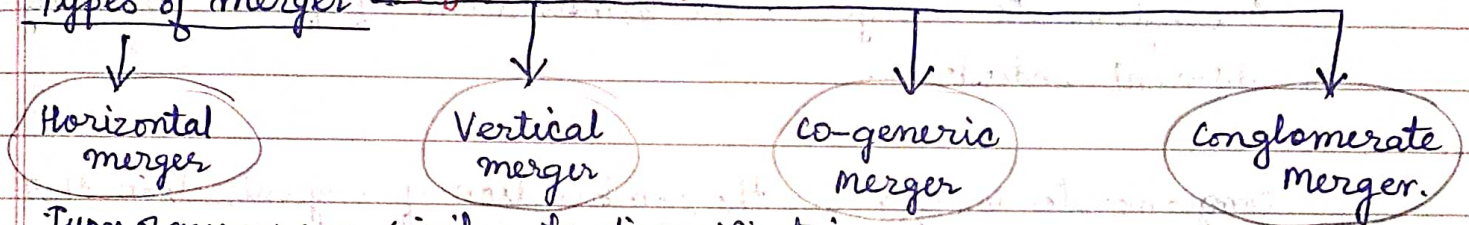 Types of merger
Horizontal merger
Vertical merger
Co-generic merger
Conglomerate merger.
Types of